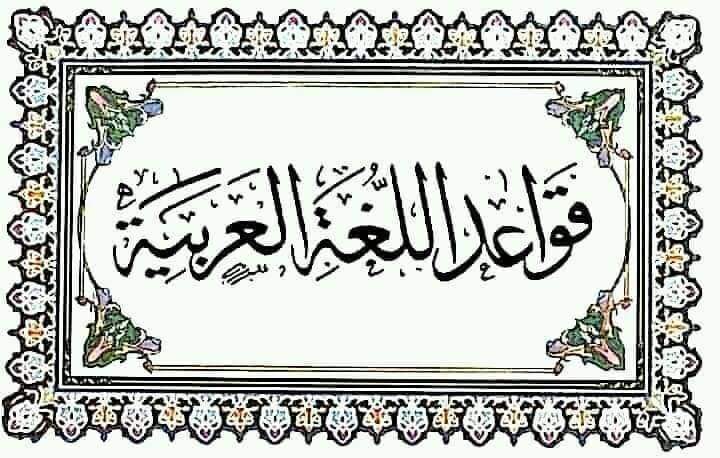 قواعد اللغة العربية